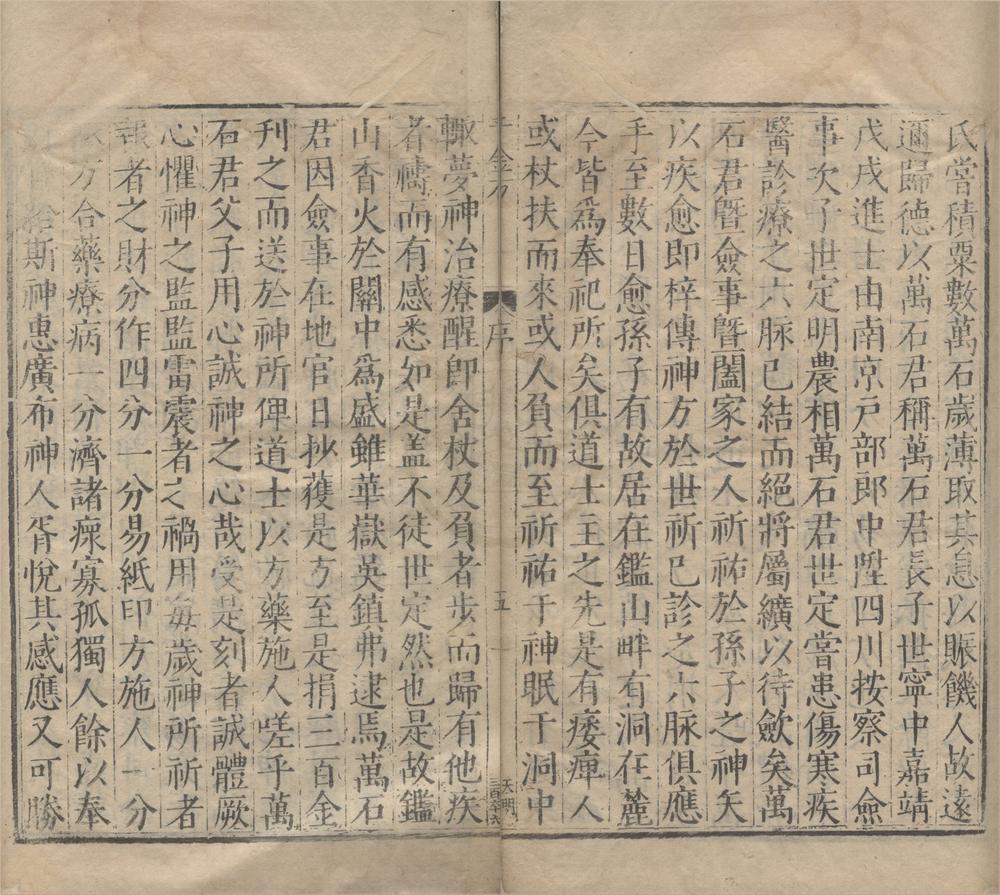 氏嘗積粟數萬石歲薄取其息以賑饑人故遠
邇歸德以萬石君稱萬石君長子世寧中嘉靖
戊戌進士由南京戶部郎中陞四川按察司僉
事次子世定明農相萬石君世定嘗患傷寒疾
醫診療之六脉已結而絕將屬纊以待歛矣萬
石君曁僉事曁闔家之人祈祐於孫子之神矢
以疾愈即梓傳神方於世祈已診之六脉俱應
手至數日愈孫子有故居在鑑山畔有洞在麓
今皆爲奉祀所矣俱道士主之先是有痿痺人
或杖扶而來或人負而至祈祐于神眠于洞中
千金方
序
五
輙夢神治療醒卽舍杖及負者步而歸有他疾
者禱而有感悉如是盖不徒世定然也是故鑑
山香火於關中爲盛雖華嶽吳鎮弗逮焉萬石
君因僉事在地官日抄獲是方至是捐三百金
刋之而送於神所俾道士以方藥施人嗟乎萬
石君父子用心誠神之心哉受是刻者誠體厥
心懼神之監監雷震者之禍用每歲神所祈者
報者之財分作四分一分易紙印方施人一分
方合藥療病一分濟諸㾗寡孤獨人餘以奉
斯神惠廣布神人胥悅其感應又可勝